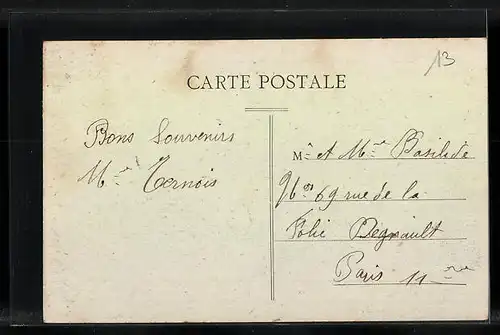 13
CARTE POSTALE
Bons Souvenirs
Mme Ternois
Mr et Mme Basilide
69 rue de la
Folie Regnault
Paris 11